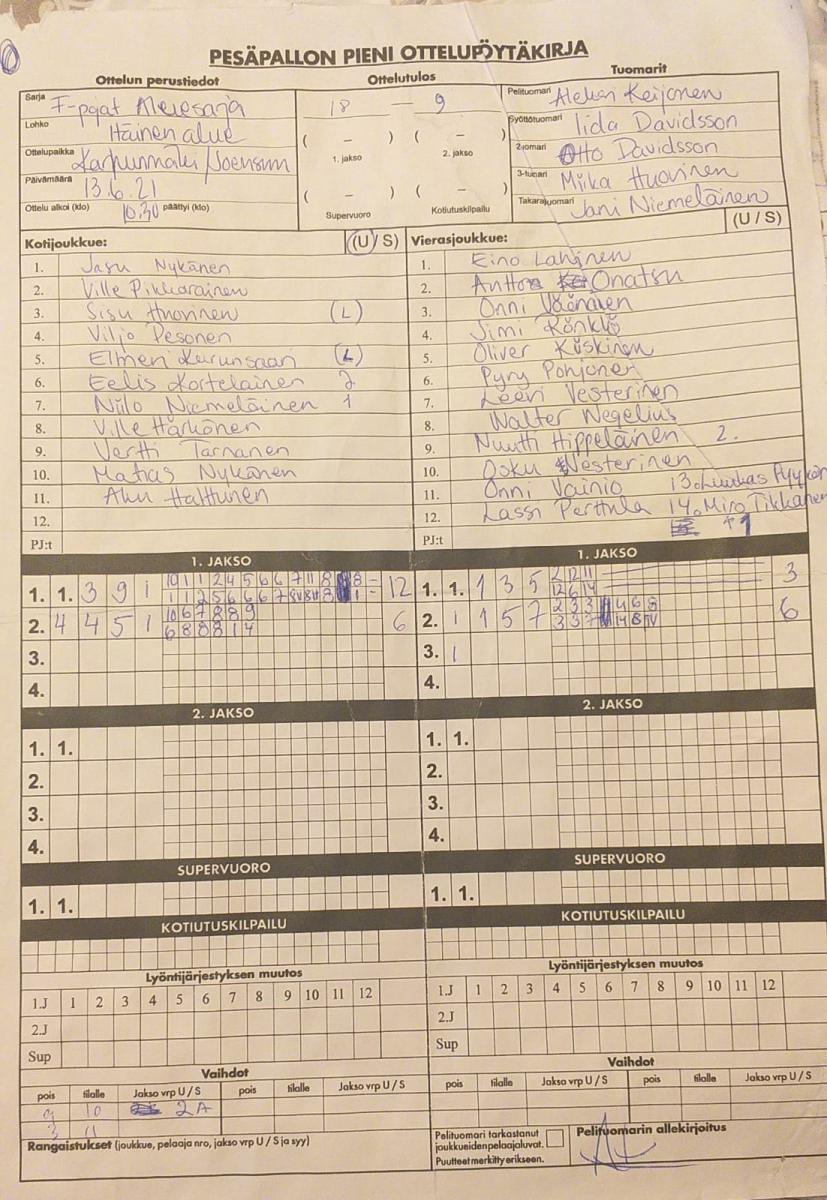 PESÄPALLON PIENI OTTELUPÖYTÄKIRJA
Ottelun perustiedot
Ottelutulos
Tuomarit
Sarja F-pojat Aluesarja
Lohko Itäinen alue
Ottelupaikka Karhunmäki/Joensuu
Päivämäärä 13.6.21
Ottelu alkoi (klo) 10.30 päättyi (klo)
18 — 9
( – ) ( – )
1. jakso 2. jakso
( – ) ( – )
Supervuoro Kotiutuskilpailu
Pelituomari Aleksi Keijonen
Syöttötuomari Iida Davidsson
2-tuomari Otto Davidsson
3-tuomari Miika Huovinen
Takarajatuomari Jani Niemeläinen
Kotijoukkue: (U / S)
1. Jasu Nykänen
2. Ville Pikkarainen
3. Sisu Huovinen (L)
4. Viljo Pesonen
5. Elmeri (L)
6. Eelis Kortelainen 2
7. Niilo Niemeläinen 1
8. Ville Härkönen
9. Vertti Tarnanen
10. Matias Nykänen
11. Aku Halttunen
12.
PJ:t
Vierasjoukkue: (U / S)
1. Eino Lahinen
2. Onatsu
3. Onni Väänänen
4. Jimi Rönkkö
5. Oliver Kiiskinen
6. Pyry Pohjonen
7. Leevi Vesterinen
8. Walter Wegelius
9. Nuutti Hippeläinen 2.
10. Osku Vesterinen
11. Onni Vainio 13. Luukas
12. Lassi Perttula 14. Miro Tikkanen
PJ:t
1. JAKSO
1. 1. 3 9 1 12
2. 4 4 5 1 6
3.
4.
1. JAKSO
1. 1. 1 3 5 3
2. 1 1 5 7 6
3. 1
4.
2. JAKSO
1. 1.
2.
3.
4.
2. JAKSO
1. 1.
2.
3.
4.
SUPERVUORO
1. 1.
SUPERVUORO
1. 1.
KOTIUTUSKILPAILU
KOTIUTUSKILPAILU
Lyöntijärjestyksen muutos
1.J 1 2 3 4 5 6 7 8 9 10 11 12
2.J
Sup
Lyöntijärjestyksen muutos
1.J 1 2 3 4 5 6 7 8 9 10 11 12
2.J
Sup
Vaihdot
pois tilalle Jakso vrp U / S pois tilalle Jakso vrp U / S
9 10 2A
3 11
Vaihdot
pois tilalle Jakso vrp U / S pois tilalle Jakso vrp U / S
Rangaistukset (joukkue, pelaaja nro, jakso vrp U / S ja syy)
Pelituomari tarkastanut
joukkueiden pelaajaluvat.
Puutteet merkitty erikseen.
Pelituomarin allekirjoitus